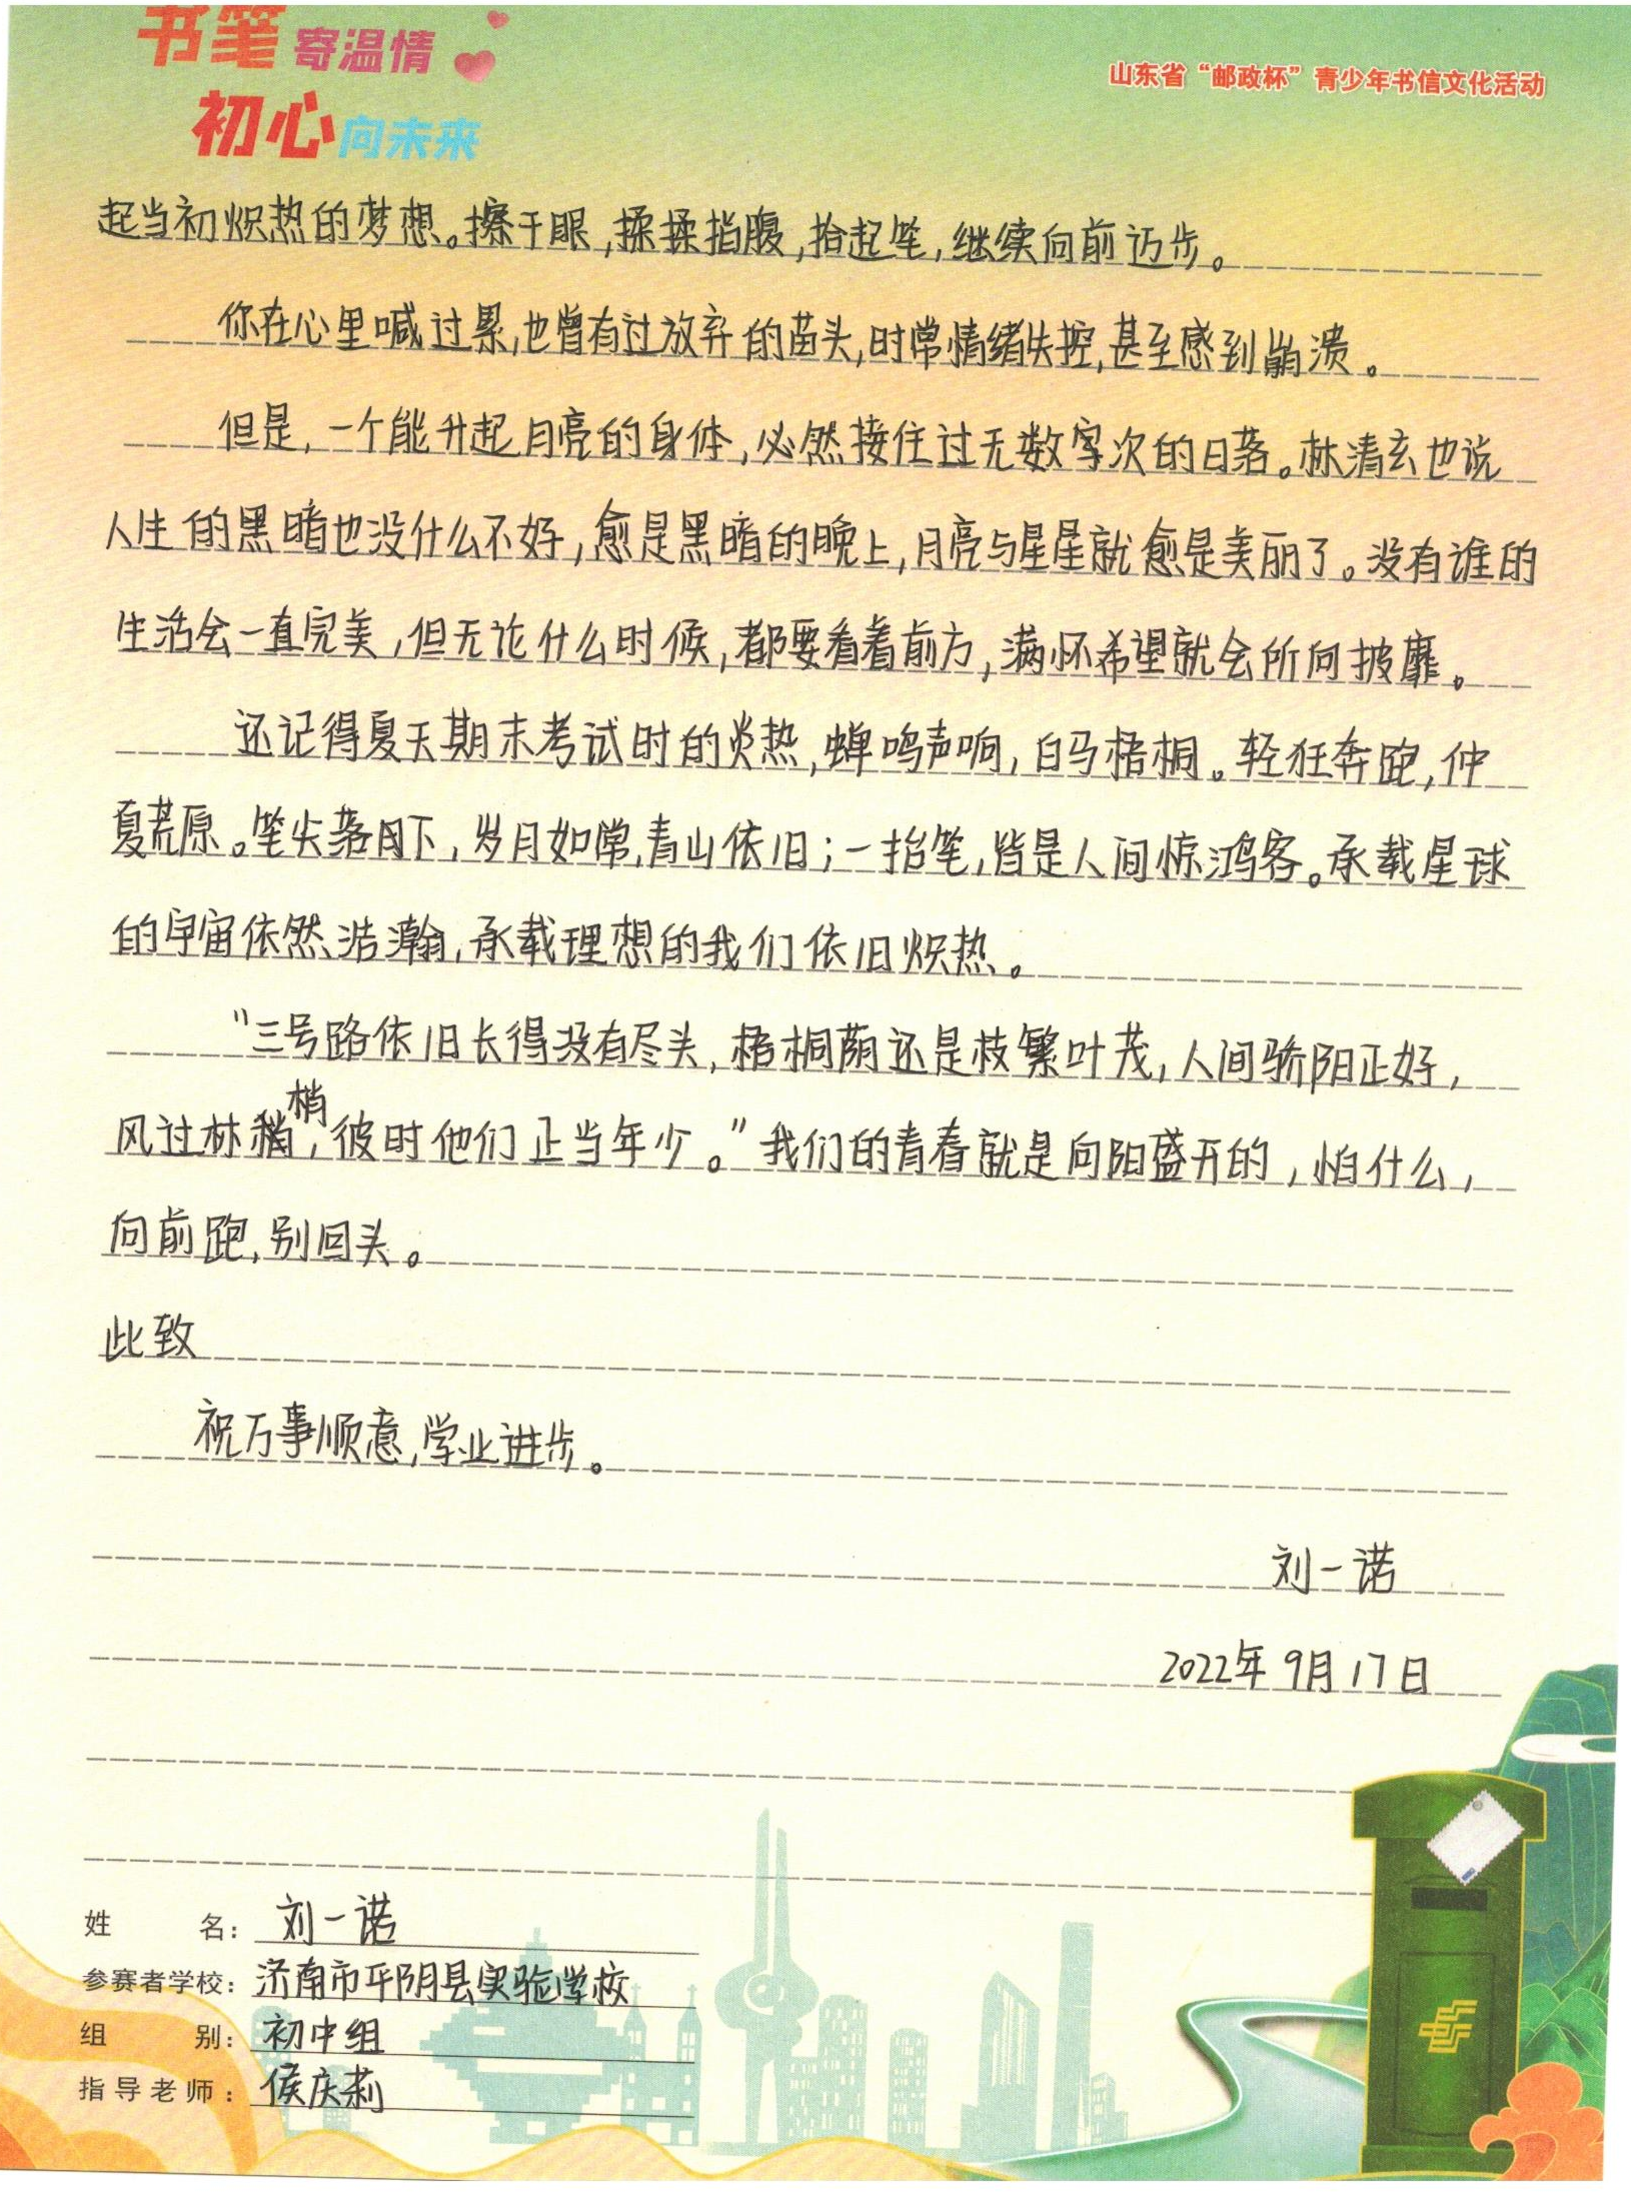 书笔寄温情
初心向未来
山东省“邮政杯”青少年书信文化活动
起当初炽热的梦想。擦干眼,揉揉指腹,拾起笔,继续向前迈步。
你在心里喊过累,也曾有过放弃的苗头,时常情绪失控,甚至感到崩溃。
但是,一个能升起月亮的身体,必然接住过无数字次的日落。林清玄也说
人生的黑暗也没什么不好,愈是黑暗的晚上,月亮与星星就愈是美丽了。没有谁的
生活会一直完美,但无论什么时候,都要看着前方,满怀希望就会所向披靡。
还记得夏天期末考试时的炎热,蝉鸣声响,白马梧桐。轻狂奔跑,仲
夏荒原。笔尖落月下,岁月如常,青山依旧;一抬笔,皆是人间惊鸿客。承载星球
的宇宙依然浩瀚,承载理想的我们依旧炽热。
“三号路依旧长得没有尽头,梧桐荫还是枝繁叶茂,人间骄阳正好,
风过林梢,彼时他们正当年少。”我们的青春就是向阳盛开的,怕什么,
向前跑,别回头。
此致
祝万事顺意,学业进步。
刘一诺
2022年9月17日
姓名:刘一诺
参赛者学校:济南市平阴县实验学校
组别:初中组
指导老师:侯庆莉